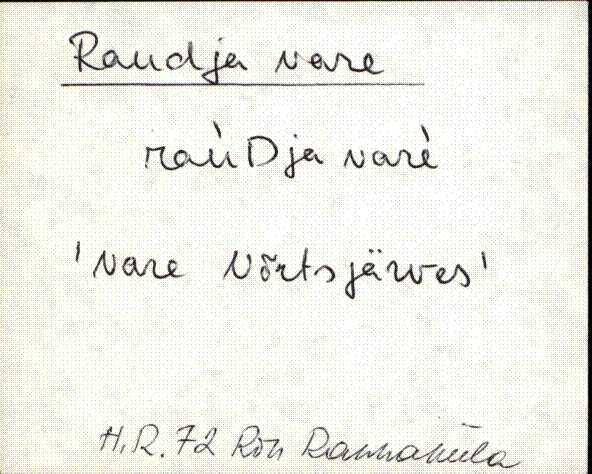 Raudja vare
raùDja varè
'vare Võrtsjärves'
H.R. 72 Rõn Rannaküla